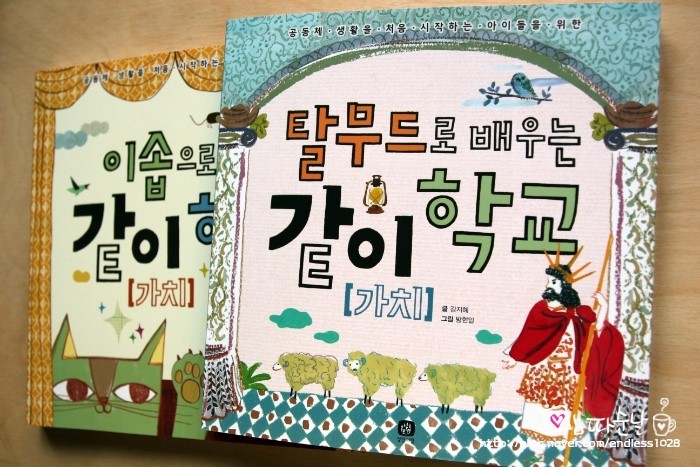 공동체·생활을·처음·시작하는·아이들을·위한
탈무드로 배우는
같이 학교
[가치]
글 김지혜
그림 방현일
공동체·생활을·처음·시작하는
이솝으로
같이
[가치]
따순날
http://blog.naver.com/endless1028